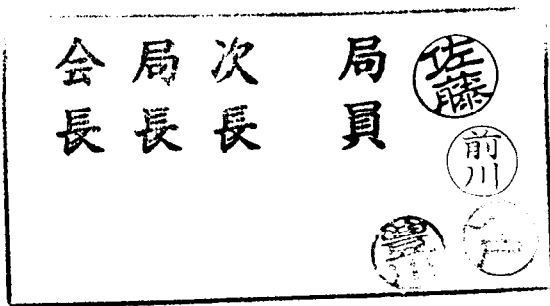 会長
局長
次長
局員
佐藤
前川